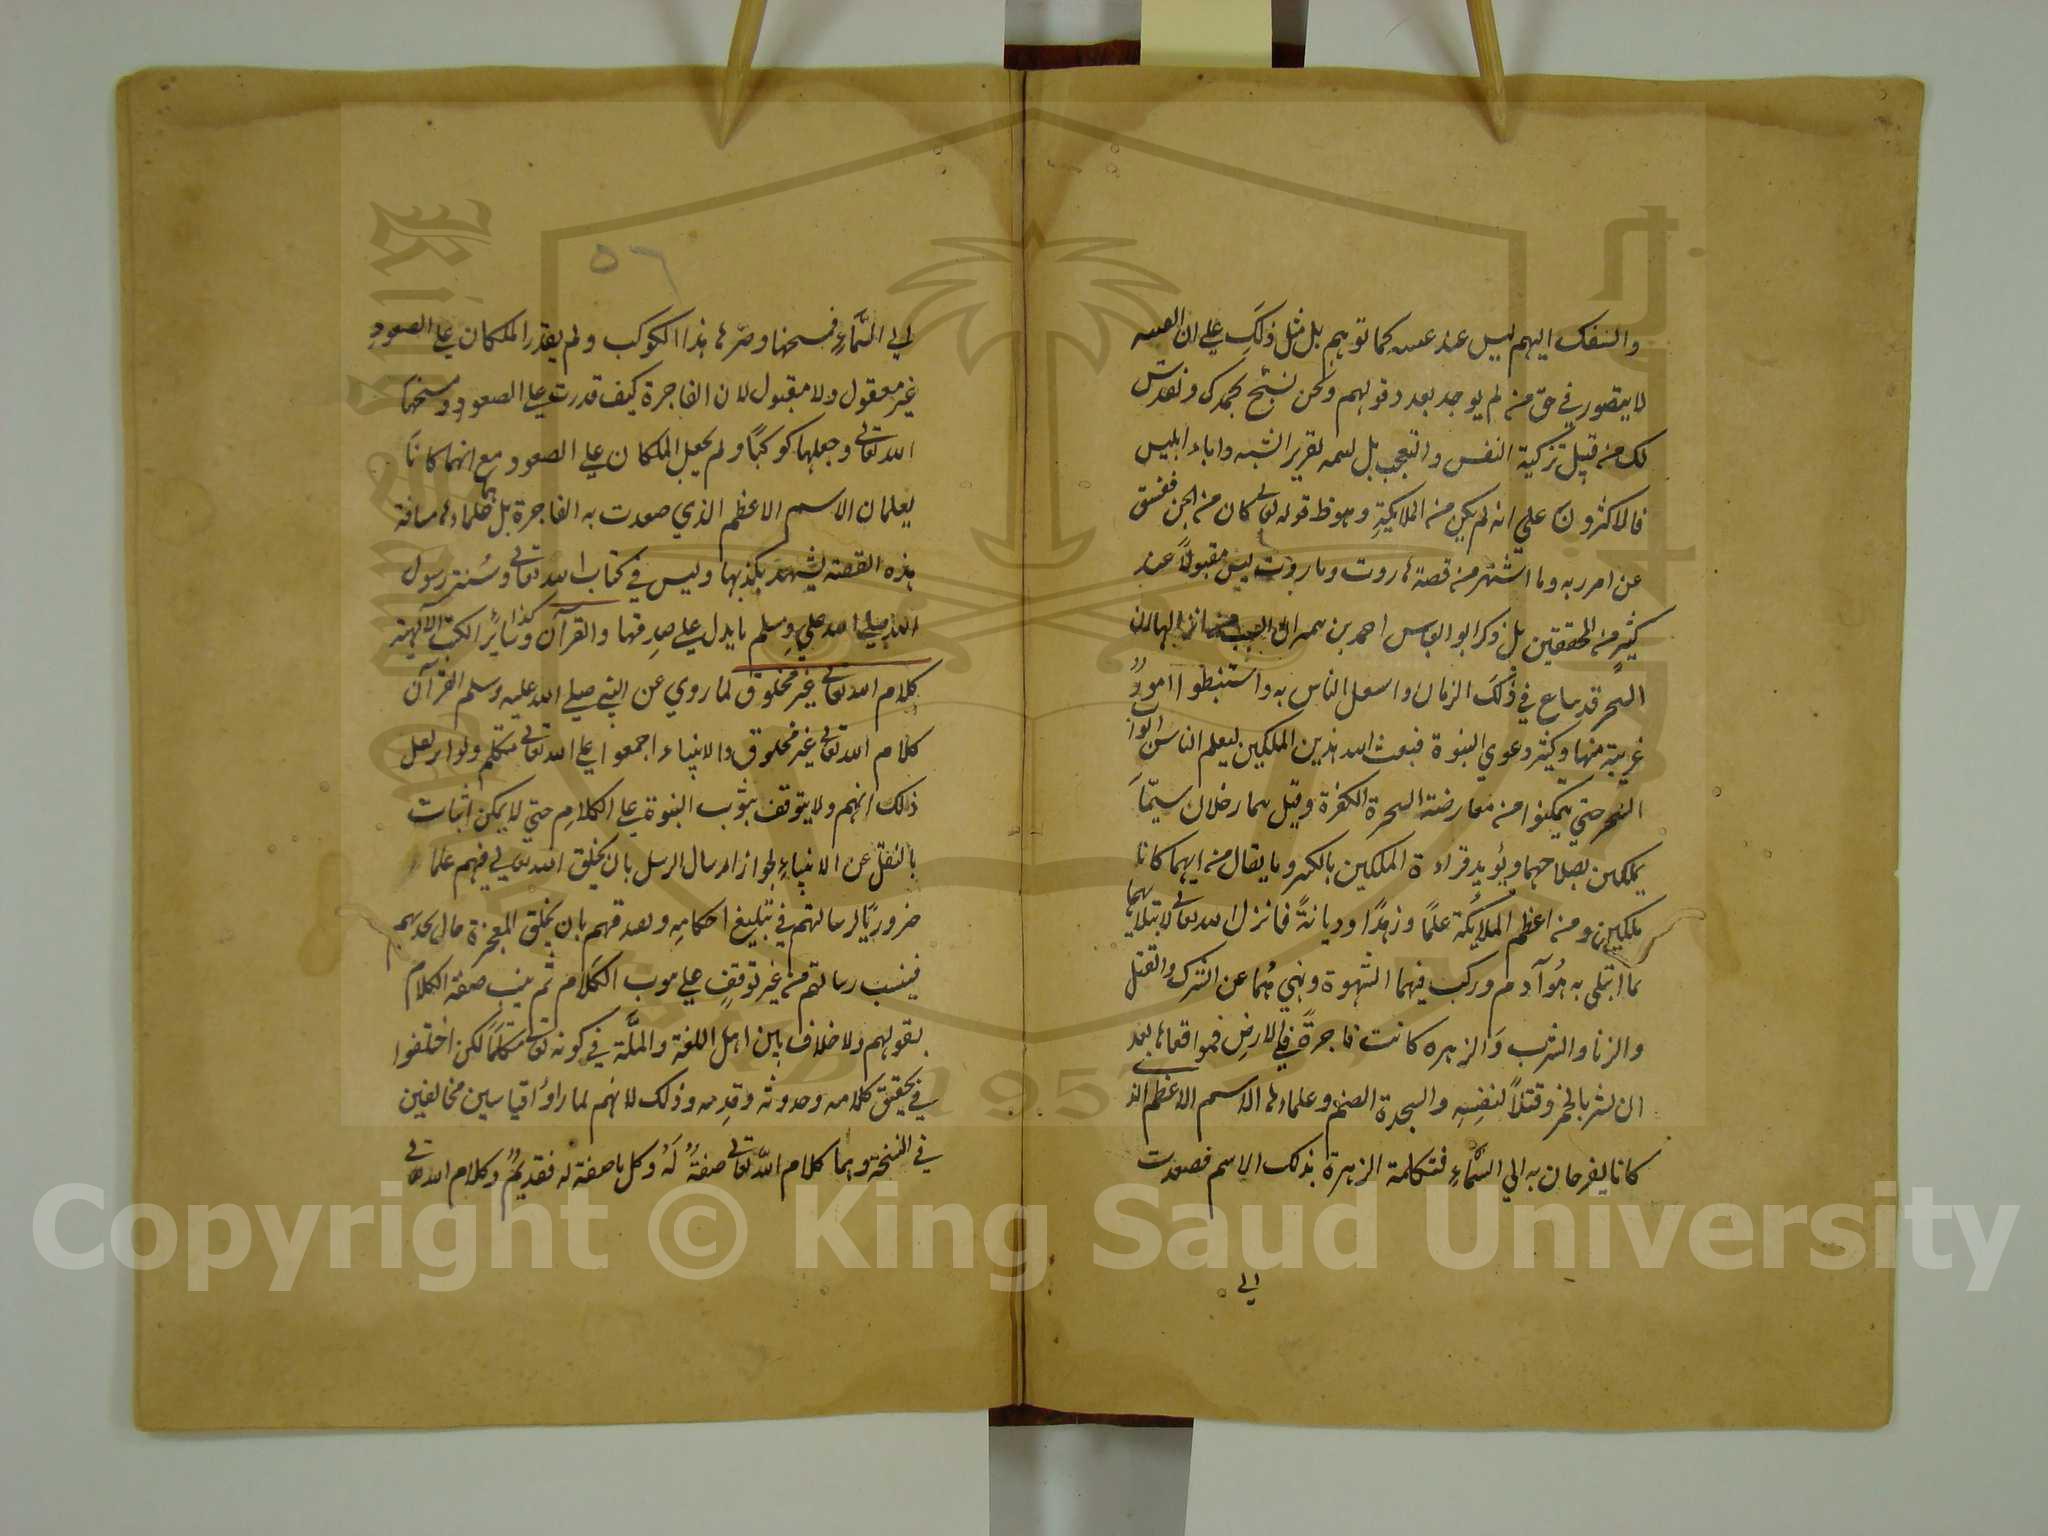 والسفك اليهم ليس عند كما توهم بل مثل ذلك على ان الغيبة
لا يتصور في حق من لم يوجد بعد وقولهم ونحن نسبح بحمدك ونقدس
لك من قبيل تزكية النفس والتعجب بل لتقرير الشبه واباء ابليس
فالاكثرون على انه لم يكن من الملايكة وهو ظ قوله تعالى كان من الجن ففسق
عن امر ربه وما اشتهر من قصة هاروت وماروت ليس مقبولاً عند
كثير من المحققين بل ذكر ابو العباس احمد بن
السحر قد شاع في ذلك الزمان الناس به واستنبطوا امورٌ
غريبة منها وكثر دعوي النبوة فبعث الله هذين الملكين ليعلم الناس ابواب
السحر حتي يتمكنوا من معارضة السحرة الكفرة وقيل هما رجلان سمّيا
بملكين بصلاحهما ويؤيد قراءة الملكين بالكسر وما يقال من ايهما كانا
ملكين ومن اعظم الملائكة علمًا وزهدًا وديانةً فانزل الله تعالى لابتلايهما
بما ابتلى به بنوآدم وركب فيهما الشهوة ونهي هُما عن الشرك والقتل
والزنا والشرب والزهره كانت فاجرةً في الارضِ فمواقعاها بعد
ان بالخمر وقتلاً لنفسِهِ والسجدة الصنم وعلماها الاسم الاعظم الذ
كانا يفرحان به الي السَّماءِ فتكلمة الزهرة بذلك الاسم فصعدت
الي
٥٦
الي السَّماءِ فمسخها وصيرها هذا الكوكب ولم يقدر الملكان على الصعود
غير معقول ولا مقبول لان الفاجرة كيف قدرت على الصعود ومسخها
الله تعالى وجعلها كوكبًا ولم يجعل الملكان على الصعود مع انهما كانا
يعلمان الاسم الاعظم الذي صعدت به الفاجرة بل هما علماها
هذه القصة يشهد بكذبها وليس في كتاب الله تعالى وسُنة رسول
الله صلى الله عليه وسلم ما يدل على صدقها والقرآن وكذا سائر الكتب الالهية
كلام الله تعالى غير مخلوق لما روي عن النبي صلي الله عليه وسلم القرآن
كلام الله تعالى غير مخلوق والانبياء اجمعوا على الله تعالى متكلم وتواتر نقل
ذلك انهم ولا يتوقف ثبوت النبوة على الكلام حتي لا يمكن اثبات
بالنقل عن الانبياءِ لجواز ارسال الرسل بان يخلق الله تعالى فيهم علما
ضروريًا لرسالتهم في تبليغ احكامِهِ وصدقهم بان يخلق المعجزة حال تحديهم
فيثبت رسالتهم من غير توقفٍ على ثبوت الكلام ثم يثبت صفة الكلام
بقولهم ولا خلاف بين اهل اللغة والملّة في كونه تعالى متكلمًا لكن اختلفوا
في تحقيق كلامه وحدوثه وقدمه وذلك لانهم لما راوُا قياسين مخالفين
في النتيجة وهما كلام الله تعالى صفةٌ لَهُ وكل ما صفة له فقديمٌ وكلام الله تعالى